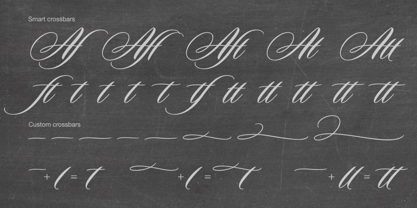 Smart crossbars
Af Aff Aft At Att
ft t t t t tf tt tt tt tt tt tt
Custom crossbars
+ ( = t + ( = t + u = tt